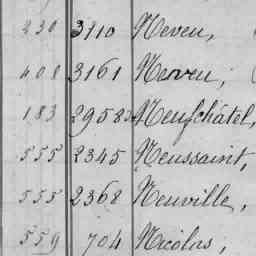 230 3110 Neveu,
408 3161 Nerveu;
183 2958 Neufchâtel,
555 2345 Neussaint,
555 2368 Neuville,
559 704 Nicolas;